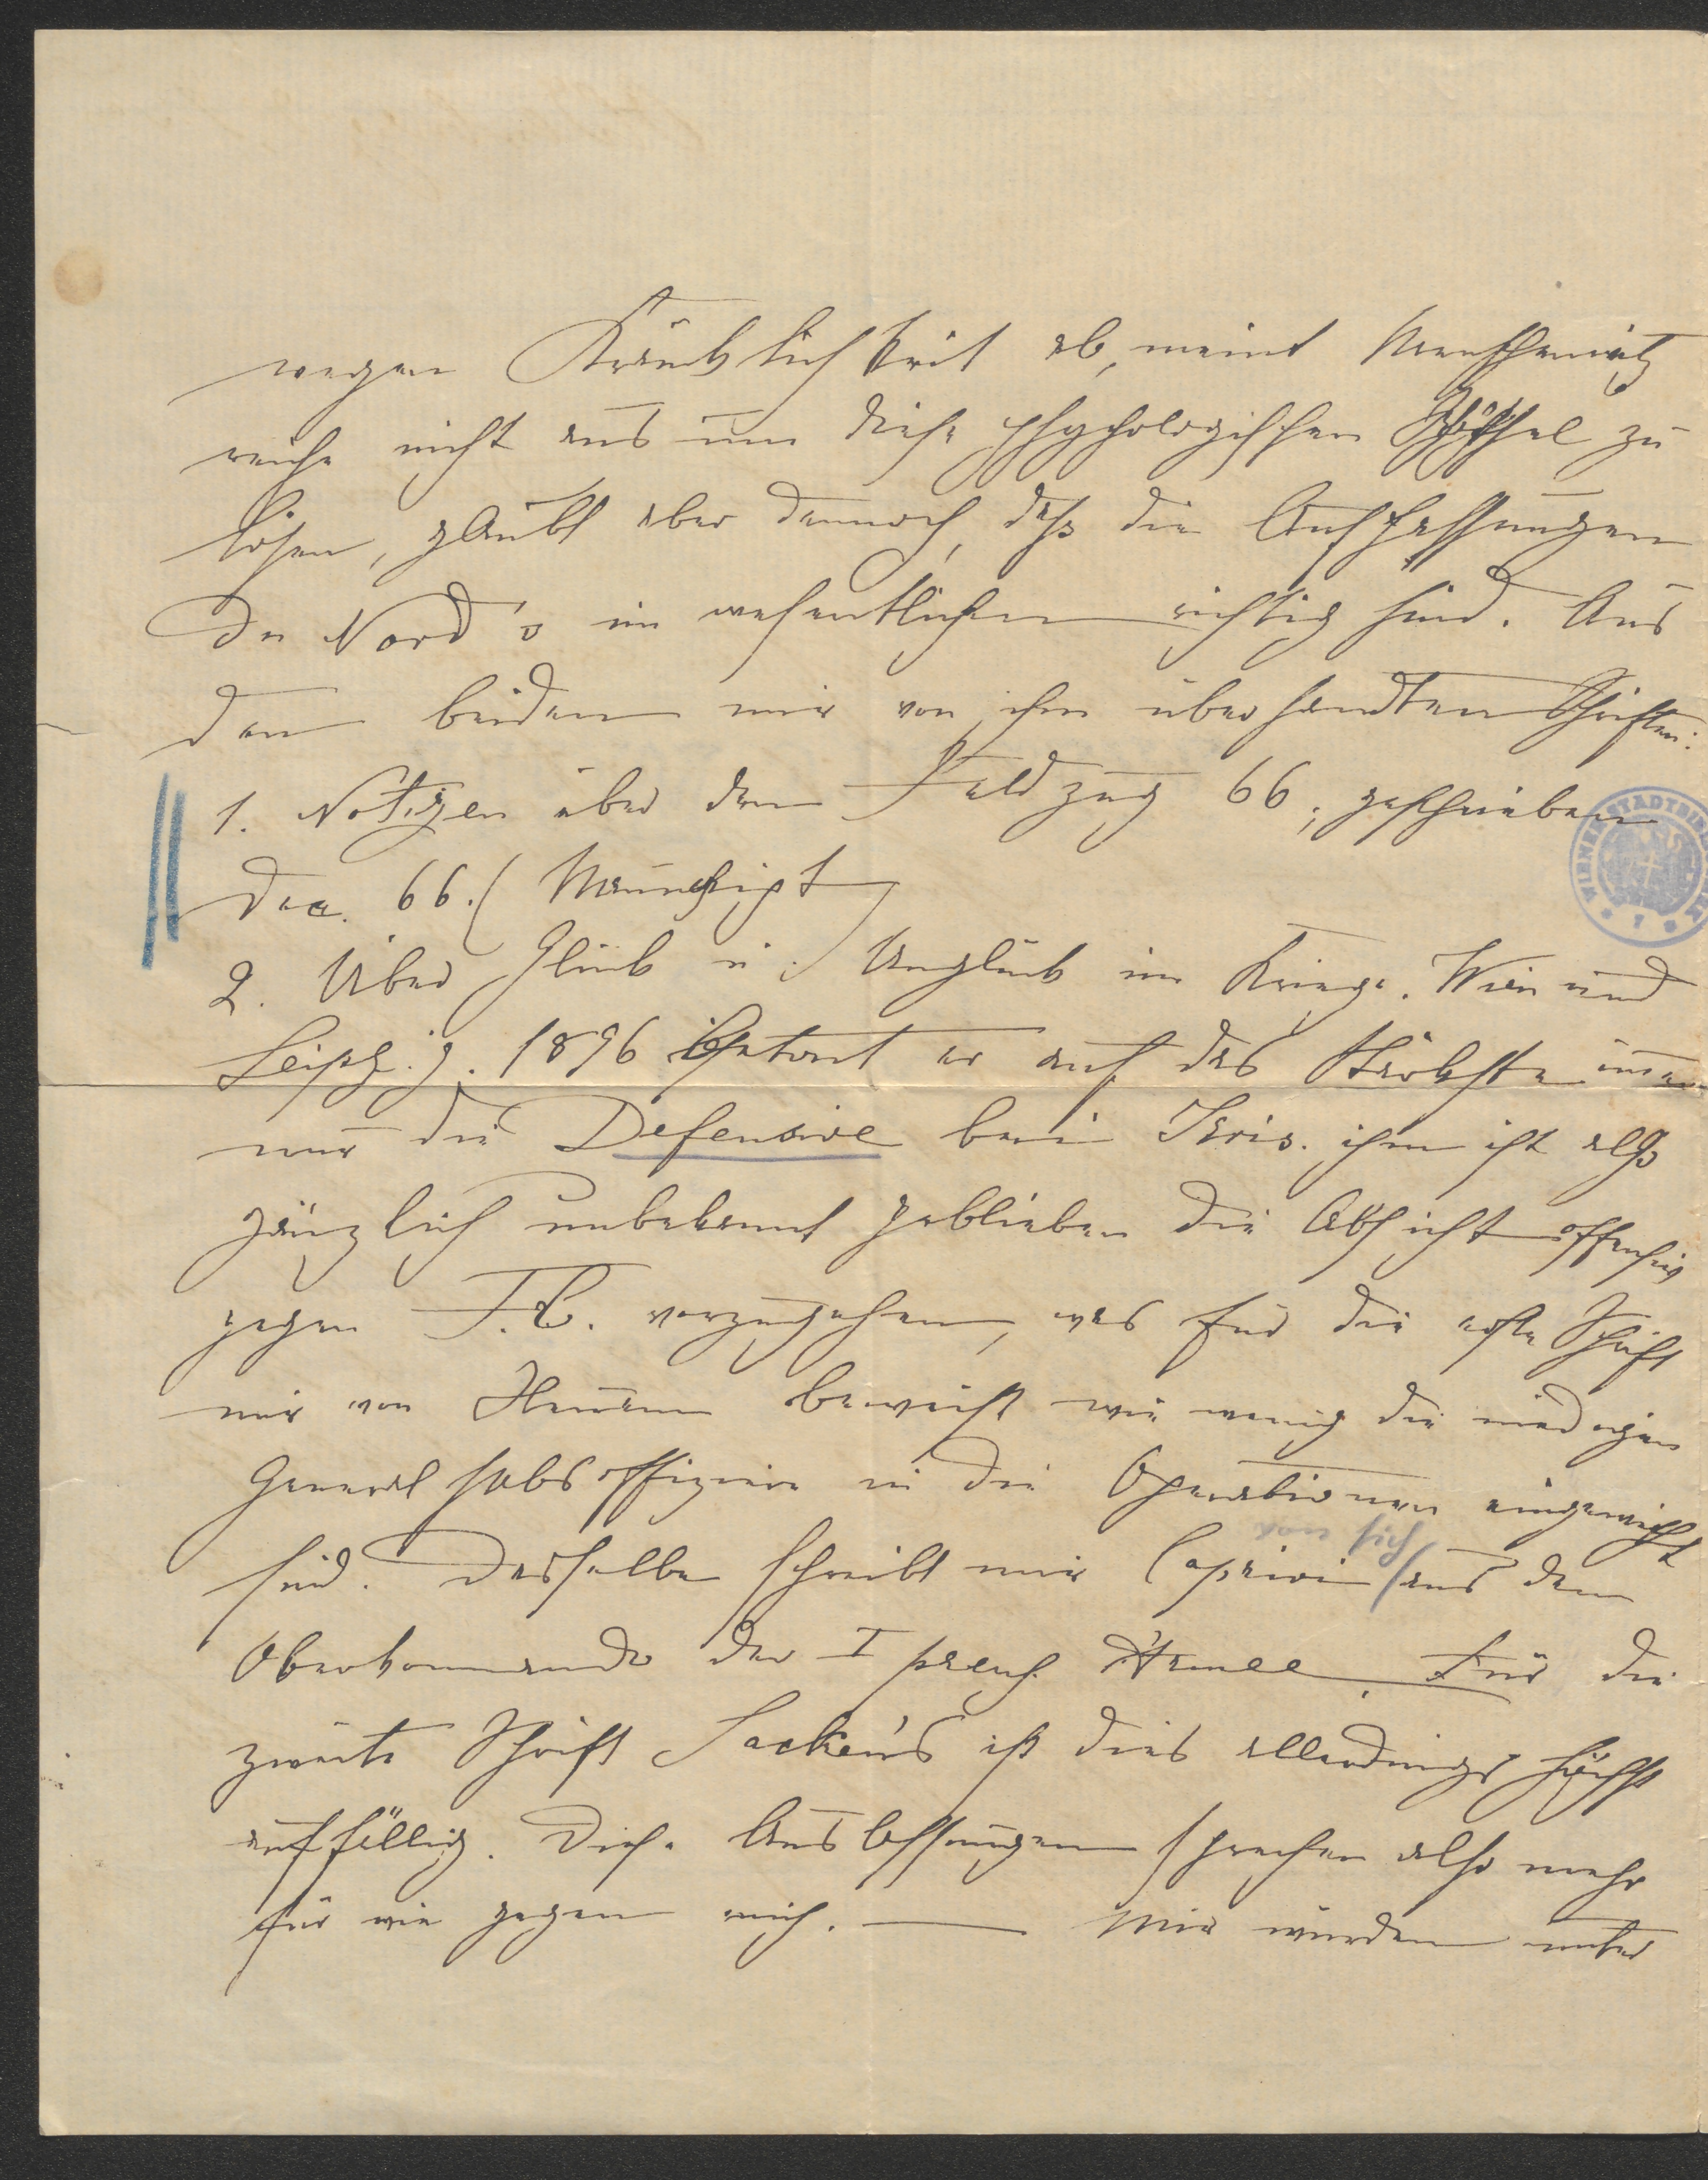 wegen Kränklichkeit ab, meint Menschenwitz
reiche nicht aus um diese psychologischen Räthsel zu
lösen, glaubt aber dennoch, daß die Auffassungen
Du Nord's im wesentlichen richtig sind. Aus
den beiden mir von ihm übersandten Schriften:
1. Notizen über den Feldzug 66, geschrieben
Dec. 66. (Manuscript)
2. Über Glück u. Unglück im Kriege. Wien und
Leipzig. 1896 betont er auf das Stärkste immer
nur die Defensive bein Iser. ihm ist also
gänzlich unbekannt geblieben die Absicht offensiv
gegen F.C. vorzugehen, was für die erste Schrift
mir von Neuem beweist wie wenig die niedrigen
Generalstabsoffiziere in die Operationen eingeweiht
sind. Dasselbe schreibt mir Caprivi von sich aus dem
Oberkommando der I preuß. Armee. Für die
zweite Schrift Sacken's ist dies allerdings höchst
auffällig. Diese Auslassungen sprechen also mehr
für wie gegen mich. — Mir wurden unter
WIENER STADTBIBLIOTHEK